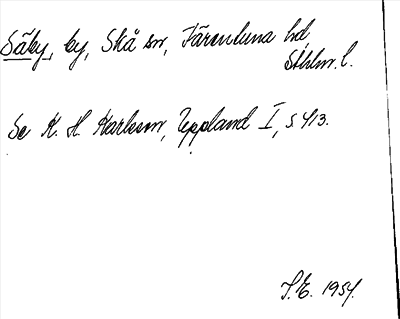 Säby, by, Skå sn, Färentuna hd,
Sthlm. l.
Se K. H. Karlsson, Uppland I, s. 413.
S.E. 1954.